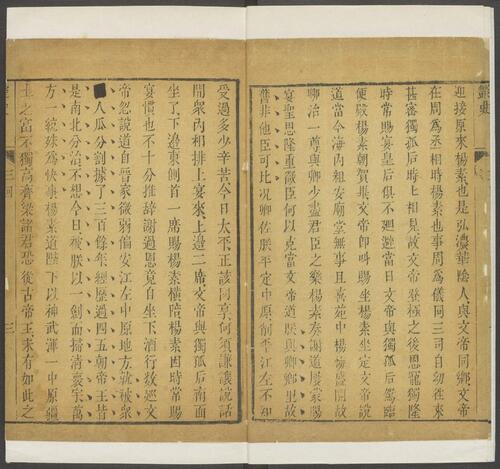 艷史
迎接原來楊素也是弘濃華陰人與文帝同鄉文帝
在周為丞相時楊素也事周為儀同三司自幼往來
甚密獨孤后時上相見故文帝登極之後恩寵獨隆
時常賜宴皇后俱不迴避當日文帝與獨孤后駕臨
便殿楊素朝賀畢文帝即叫賜坐楊素坐定文帝說
道當今海內粗安廟堂無事且喜苑中楊梅盛開故
卿治一尊與卿少盡君臣之樂楊素奏謝道屢蒙賜
宴聖思隆重微臣何以克當文帝道朕與卿鄉里故
舊非他臣可比况卿佐朕平定中原削平江左不知
受過多少辛苦今日太平正該同享何須謙讓說話
間衆內相排上宴來上邊二席文帝與獨孤后南面
坐了下邊東側首一席賜楊素橫陪楊素因時常賜
宴慣也不十分推辭謝過恩竟自坐下酒行數巡文
帝忽說道自晉家微弱偏安江左中原地方就被衆
■人瓜分割據了三百餘年經歷過四五朝帝王皆
是南北分治不想今日被朕以一劍而掃清寰宇萬
方一統殊為快事楊素道陛下以神武渾一中原疆
土之富不獨高齊梁諸君恐後古帝王未有如此之
三囘
三